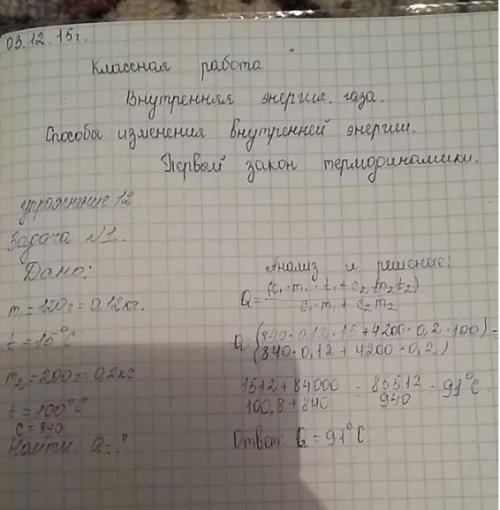 03.12.15г.
Классная работа
Внутренняя энергия газа.
Способы изменения внутренней энергии.
Первый закон термодинамики.
упражнение 12.
Задача №1.
Дано:
m₁=120г=0,12кг.
t=15°C
m₂=200г=0,2кг
t=100°C
c=840
Найти: Q=?
Анализ и решение:
Q=(c₁·m₁·t₁+c₂·m₂t₂)
c₁·m₁+c₂m₂
Q=(840·0,12·15+4200·0,2·100)=
(840·0,12+4200·0,2)
1512+84000 = 85512 = 91°C
100,8+840 940
Ответ: Q=91°C